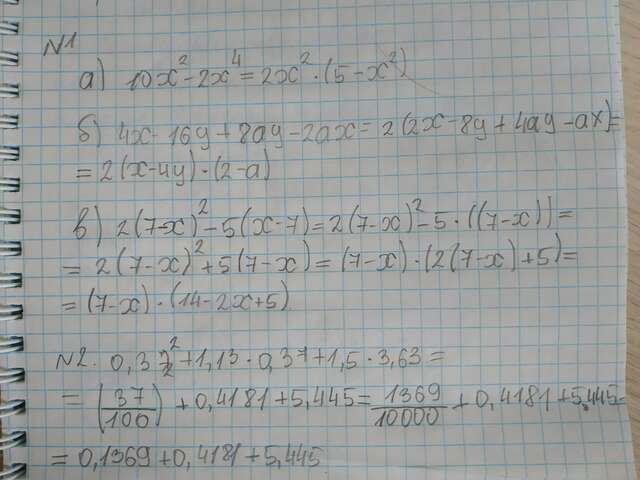 №1
а) 10x² - 2x⁴ = 2x² · (5 - x²)
б) 4x - 16y + 8ay - 2ax = 2(2x - 8y + 4ay - ax) =
= 2(x - 4y) · (2 - a)
в) 2(7-x)² - 5(x-7) = 2(7-x)² - 5 · ((7-x)) =
= 2(7-x)² + 5(7-x) = (7-x) · (2(7-x) + 5) =
= (7-x) · (14 - 2x + 5)
№2. 0,37² + 1,13 · 0,37 + 1,5 · 3,63 =
= (37/100) + 0,4181 + 5,445 = 1369/10000 + 0,4181 + 5,445 =
= 0,1369 + 0,4181 + 5,445